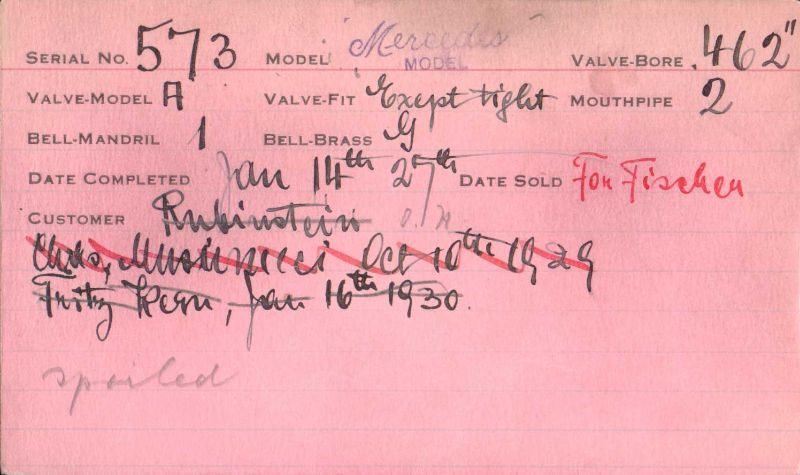 SERIAL NO. 573 MODEL Mercedes MODEL VALVE-BORE .462"
VALVE-MODEL A VALVE-FIT Exept tight MOUTHPIPE 2
BELL-MANDRIL 1 BELL-BRASS G
DATE COMPLETED Jan 14th 27th DATE SOLD For Fischer
CUSTOMER Rubinstein
Oct 10th 1929
Fritz Kern, Jan 16th 1930.
spoiled